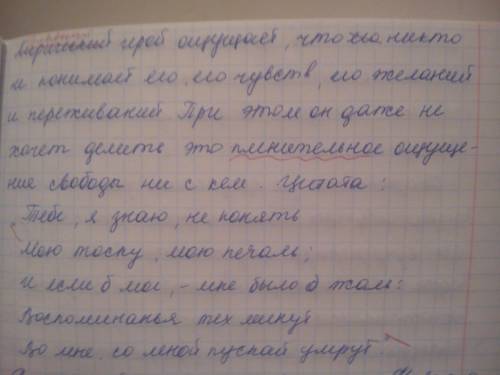 Лирический герой ощущает, что его никто
и понимает его, его чувств, его желаний
и переживаний При этом он даже не
хочет делить это пленительное ощуще-
ние свободы ни с кем. Цитата:
Тебе, я знаю, не понять
Мою тоску, мою печаль;
И если б мог, – мне было б жаль:
Воспоминанья тех минут
Во мне, со мной пускай умрут